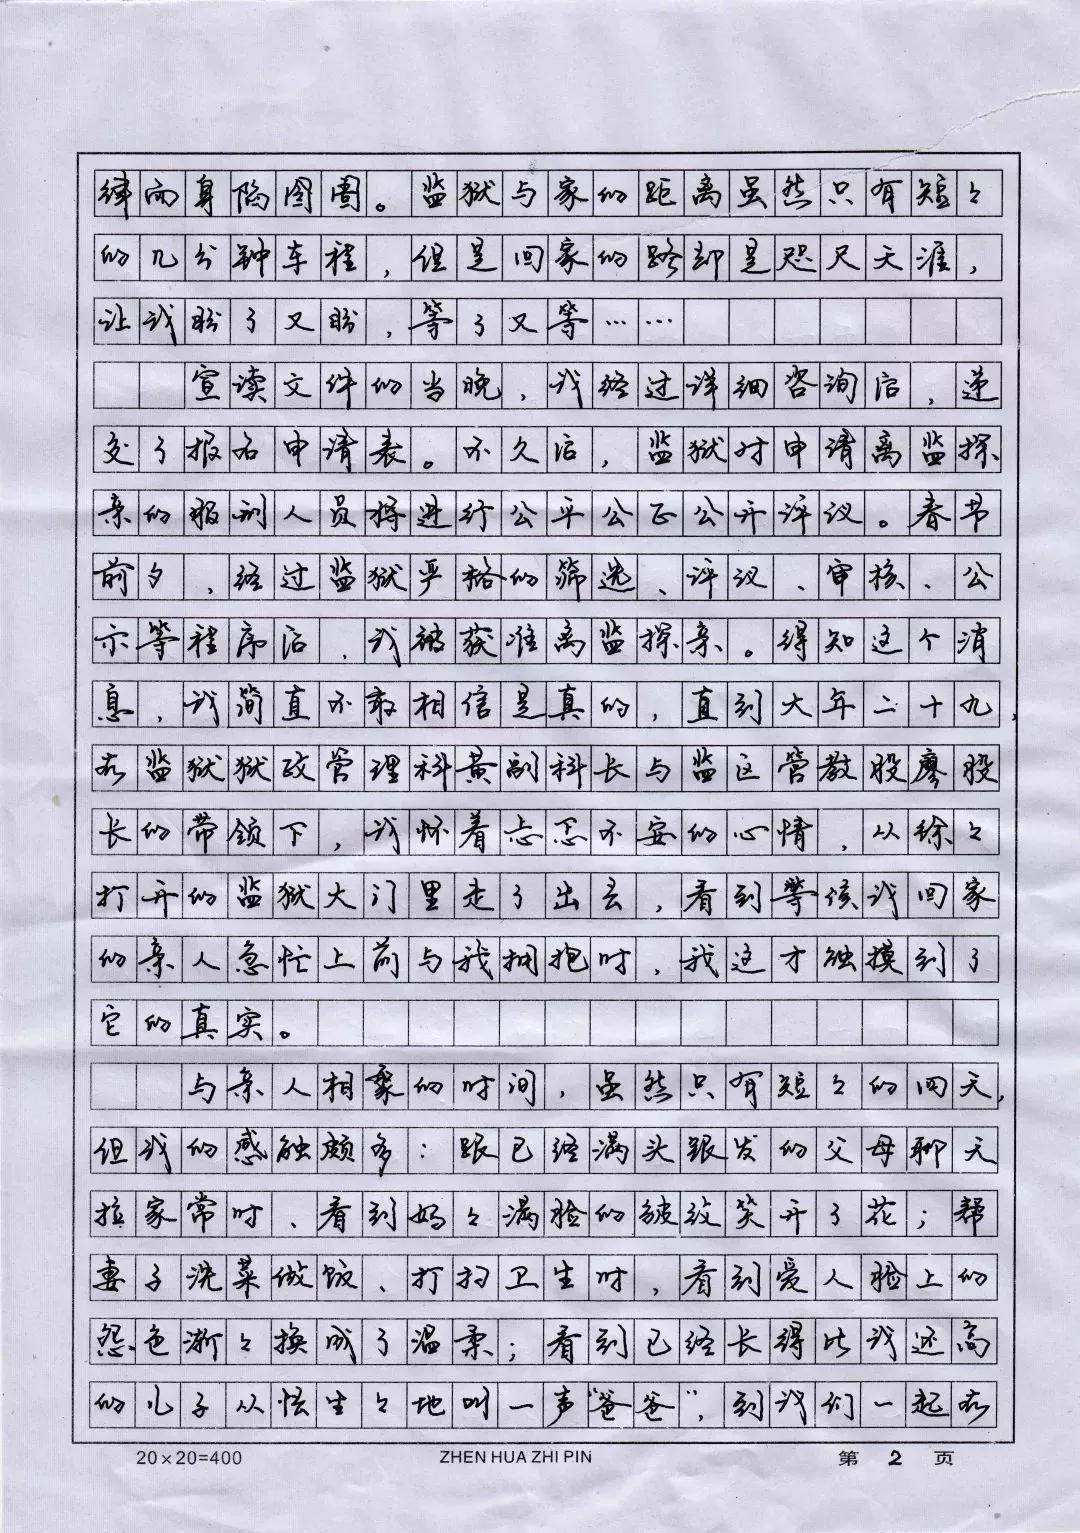 肆而身陷囹圄。监狱与家的距离虽然只有短々
的几分钟车程，但是回家的路却是咫尺天涯，
让我盼了又盼，等了又等……
宣读文件的当晚，我经过详细咨询后，递
交了报名申请表。不久后，监狱对申请离监探
亲的服刑人员将进行公平公正公开评议。春节
前夕，经过监狱严格的筛选、评议、审核、公
示等程序后，我被获准离监探亲。得知这个消
息，我简直不敢相信是真的，直到大年二十九，
在监狱狱政管理科黄副科长与监区管教股廖股
长的带领下，我怀着忐忑不安的心情，从徐々
打开的监狱大门里走了出去，看到等候我回家
的亲人急忙上前与我拥抱时，我这才触摸到了
它的真实。
与亲人相聚的时间，虽然只有短々的四天，
但我的感触颇多：跟已经满头银发的父母聊天
拉家常时、看到妈々满脸的皱纹笑开了花；帮
妻子洗菜做饭、打扫卫生时，看到爱人脸上的
怨色渐々换成了温柔；看到已经长得比我还高
的儿子从怯生々地叫一声“爸爸”，到我们一起在
20×20=400 ZHEN HUA ZHI PIN 第 2 页